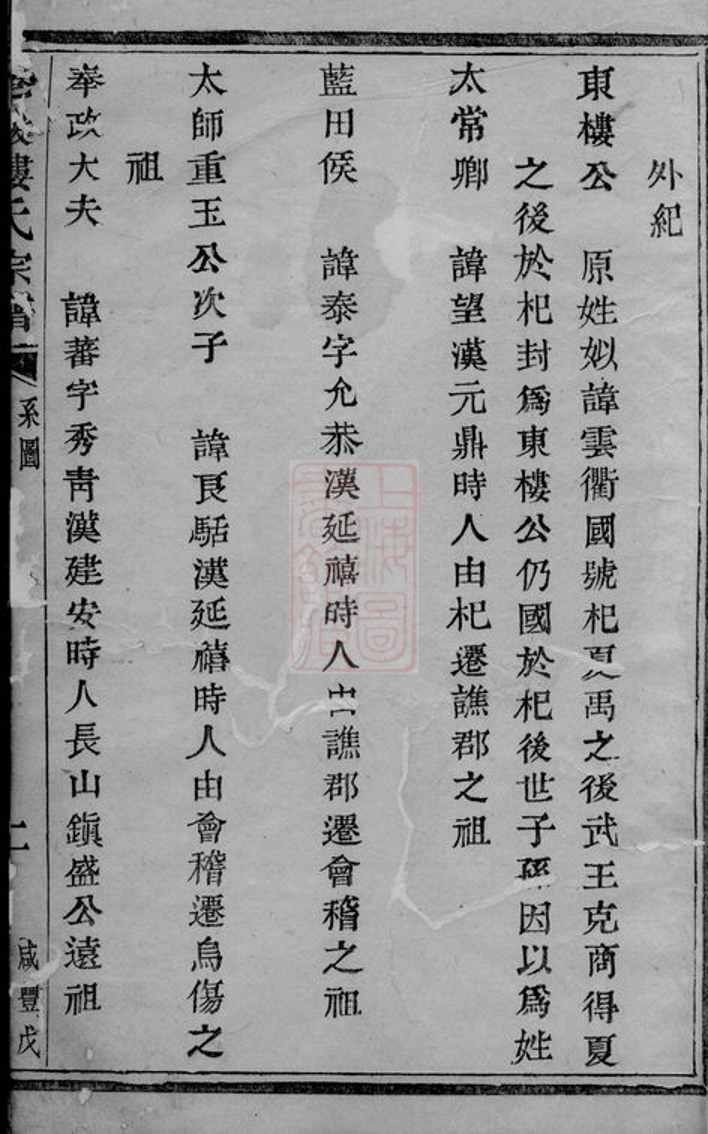 外紀
東樓公 原姓姒諱雲衢國號杞夏禹之後武王克商得夏
之後於杞封爲東樓公仍國於杞後世子孫因以爲姓
太常卿 諱望漢元鼎時人由杞遷譙郡之祖
藍田侯 諱泰字允恭漢延禧時人由譙郡遷會稽之祖
太師重玉公次子 諱良駘漢延禧時人由會稽遷烏傷之
祖
奉政大夫 諱蕃字秀靑漢建安時人長山鎭盛公遠祖
樓氏宗譜 系圖 二 咸豐戊
上海圖